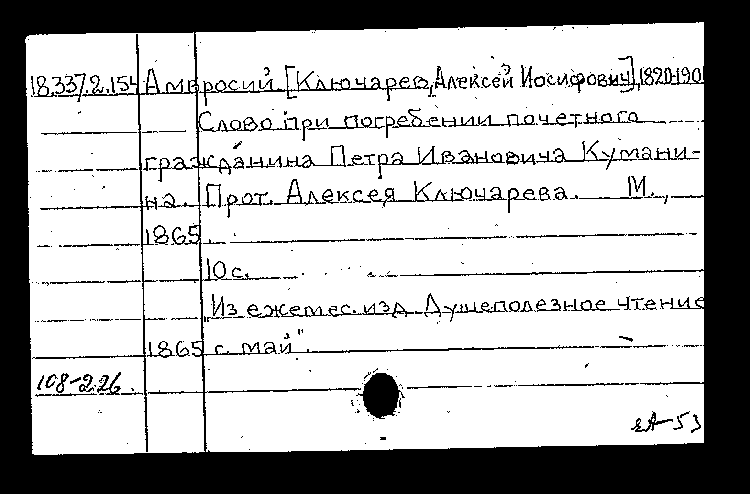 18.337.2.154 Амвросий [Ключарев, Алексей Иосифович], 1820-1901
Слово при погребении почетного
гражданина Петра Ивановича Кумани-
на. Прот. Алексея Ключарева. М.,
1865.
10 с.
„Из ежемес. изд. Душеполезное чтение
1865 г. май".
108-226.